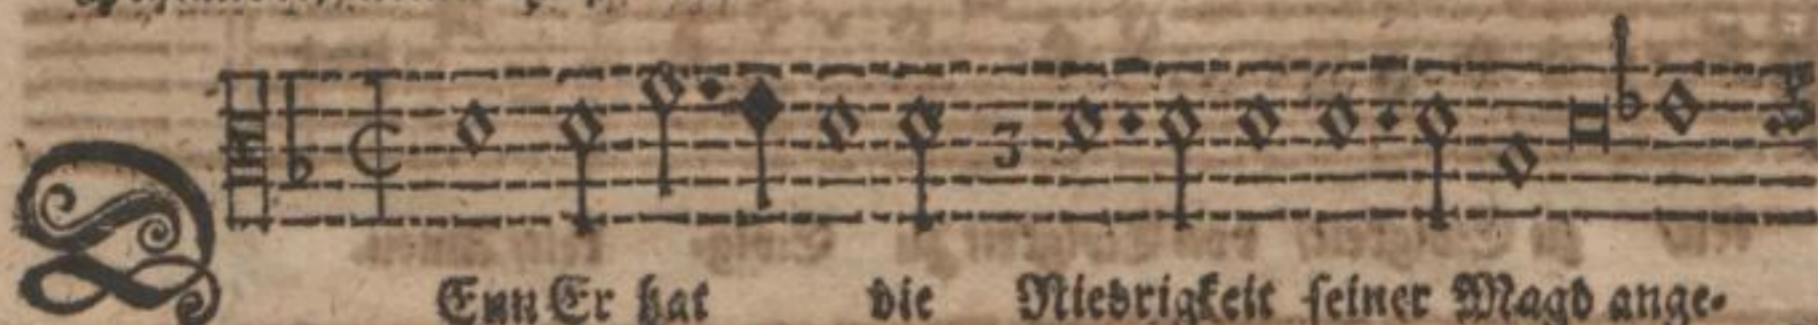 DEnn Er hat die Niedrigkeit seiner Magd ange-